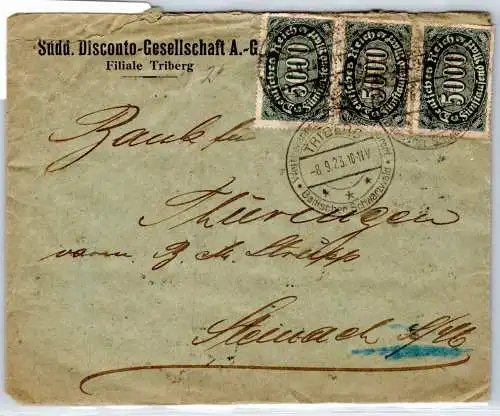 Südd. Disconto-Gesellschaft A.-G.
Filiale Triberg
Deutsches Reich 5000 Fünftausend
Deutsches Reich 5000 Fünftausend
Deutsches Reich 5000 Fünftausend
TRIBERG
-8.9.23.10-11V
Badischer Schwarzwald
Bank für
Thüringen
vorm. B. M. Strupp
Steinach S/M